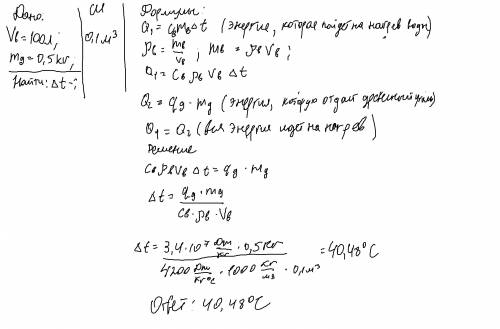 Дано:
Vв = 100л;
mд = 0,5кг,
Найти: Δt-;
СИ
0,1м³
Формулы:
Q₁ = cвmвΔt (энергия, которая пойдет на нагрев воды)
ρв = mв/Vв ; mв = ρвVв ;
Q₁ = CвρвVвΔt
Q₂ = qд · mд (энергия, которую отдаст древесный уголь)
Q₁ = Q₂ (вся энергия идет на нагрев)
Решение
CвρвVвΔt = qд · mд
Δt = qд · mд / Cв · ρв · Vв
Δt = 3,4 · 10⁷ Дж/кг · 0,5кг / 4200 Дж/кг°C · 1000 кг/м³ · 0,1м³ = 40,48°C
Ответ: 40,48°C